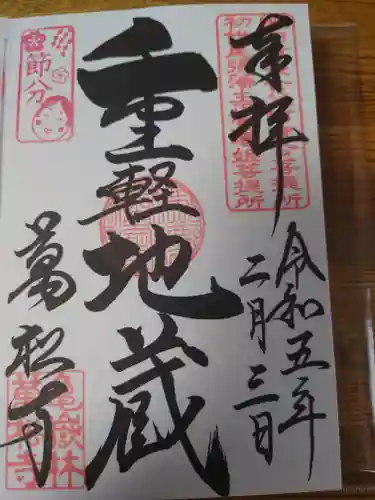 奉拝
令和五年
二月三日
重軽地蔵
節分
萬松寺
亀嶽林
萬松寺